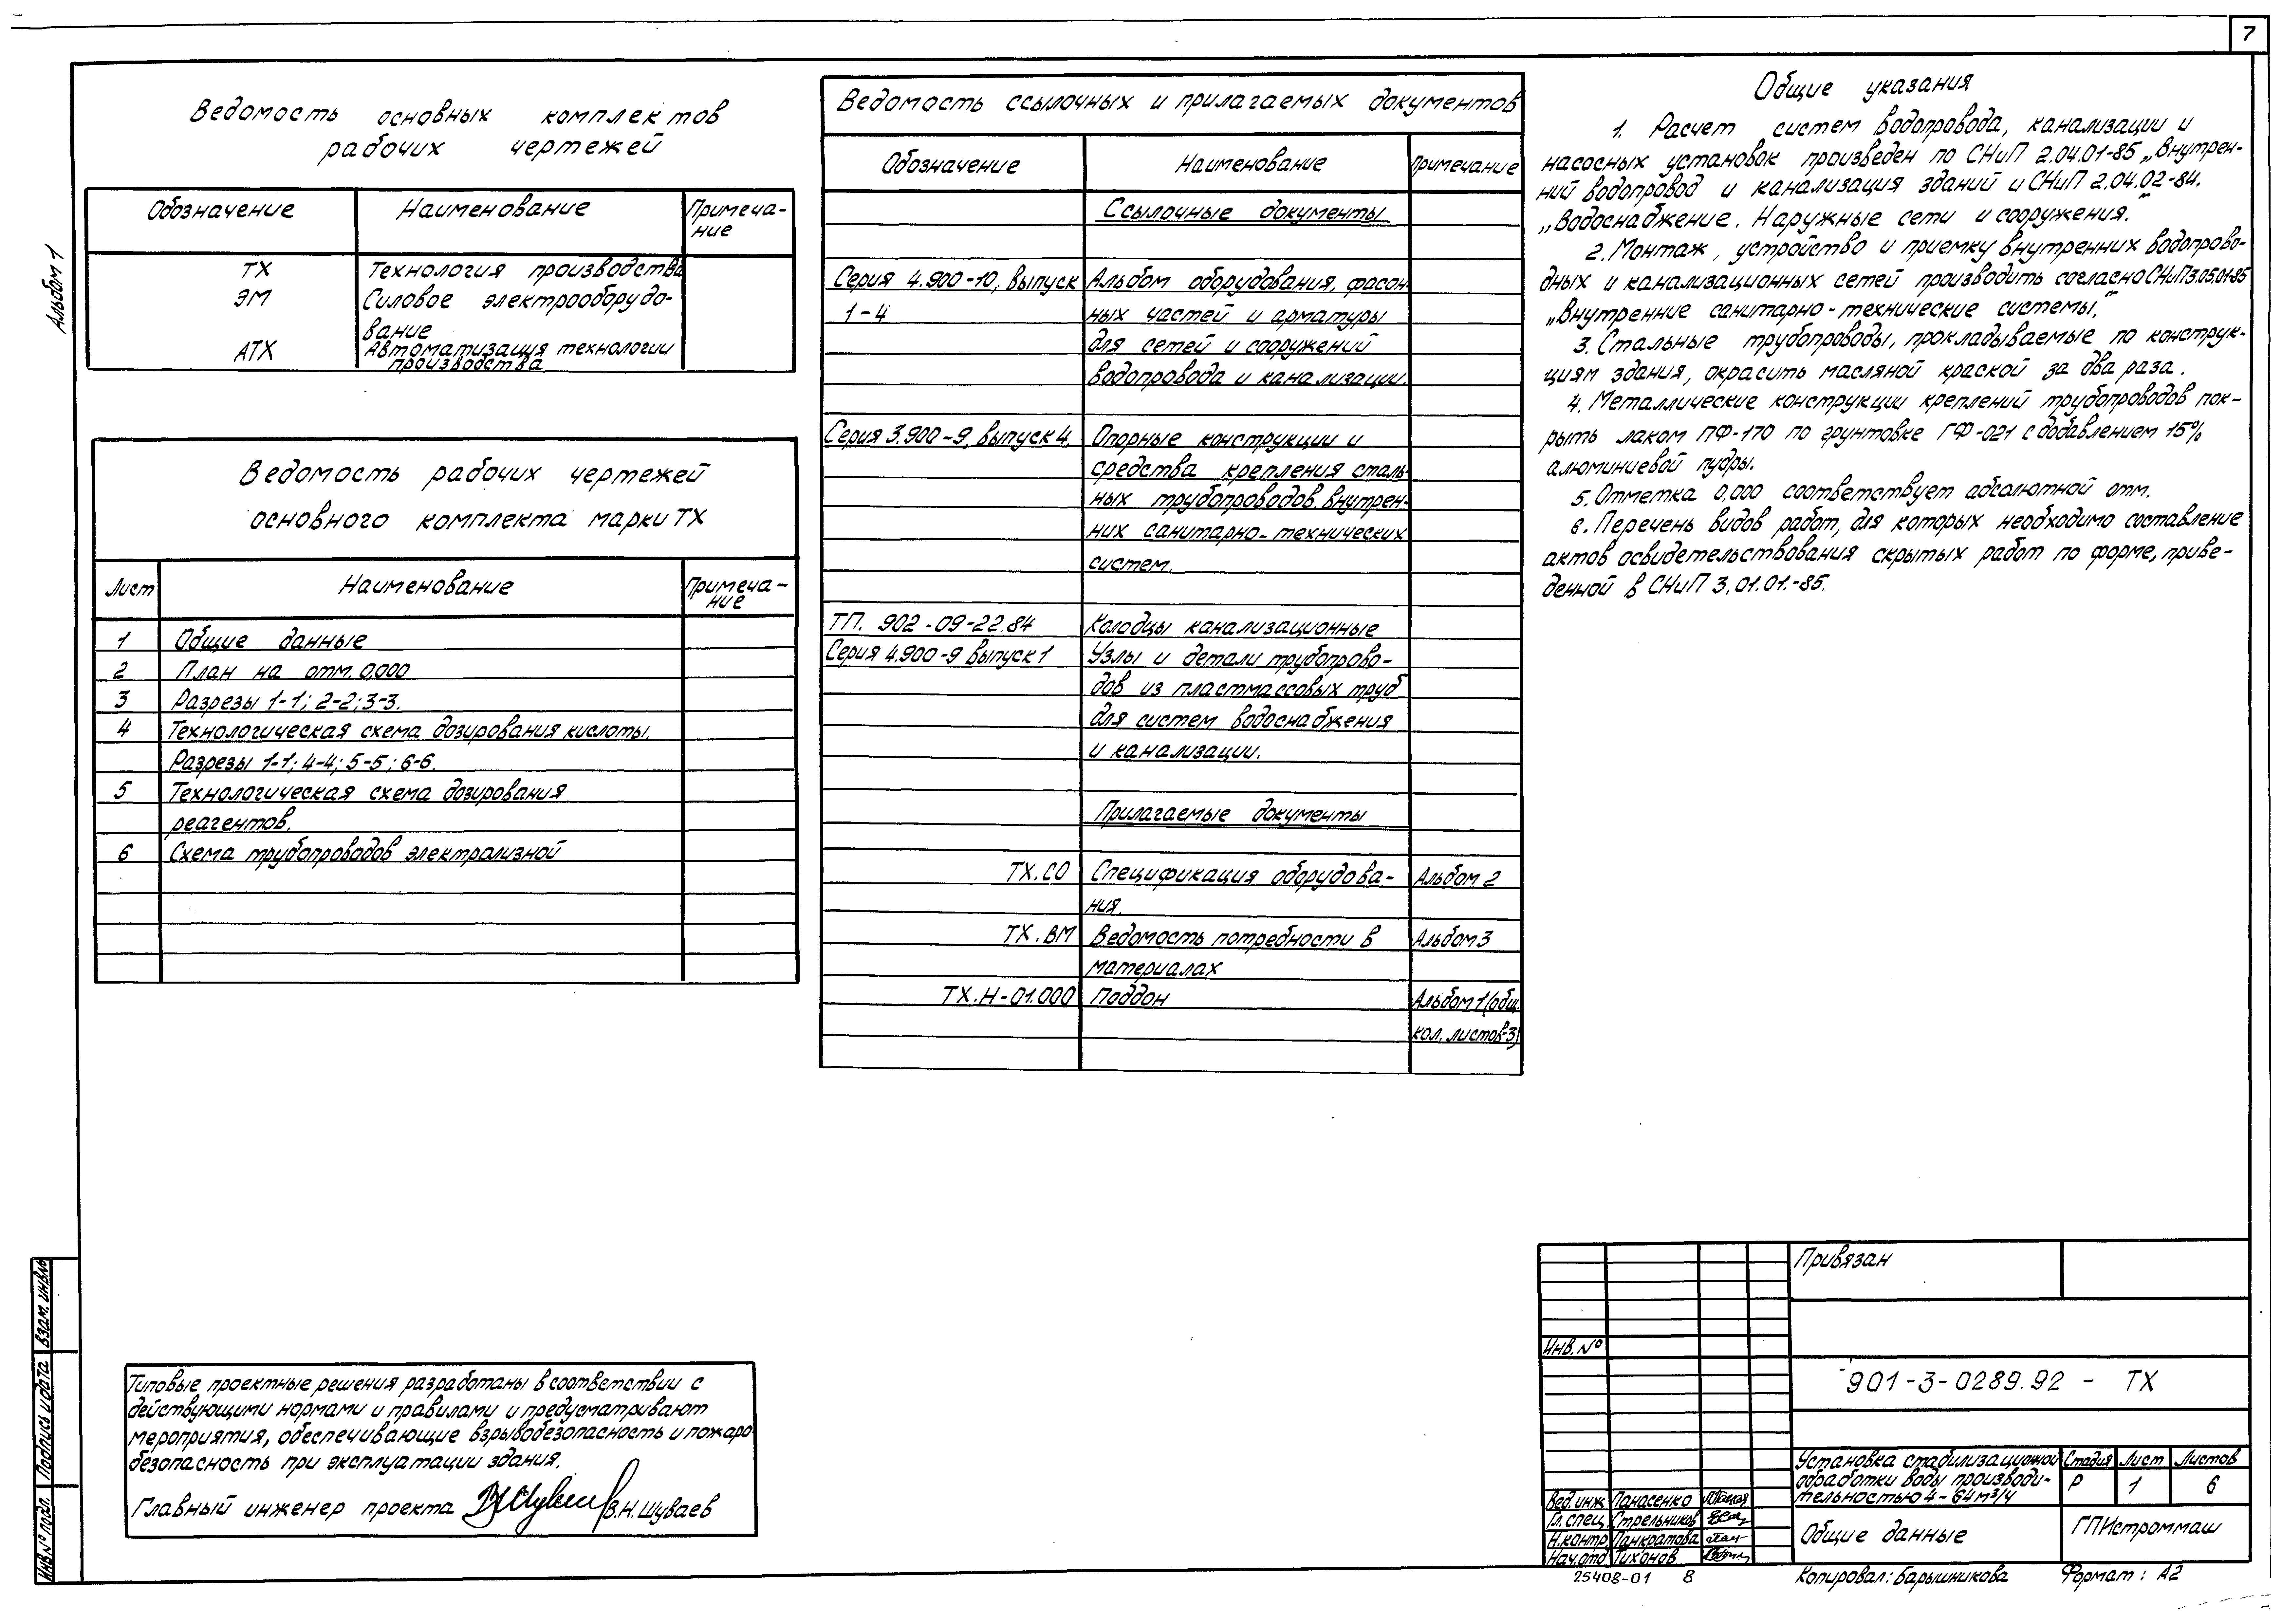 7
Альбом 1
Ведомость основных комплектов
рабочих чертежей
Обозначение Наименование Примеча-
ние
ТХ Технология производства
ЭМ Силовое электрооборудо-
вание
АТХ Автоматизация технологии
производства
Ведомость рабочих чертежей
основного комплекта марки ТХ
Лист Наименование Примеча-
ние
1 Общие данные
2 План на отм. 0,000
3 Разрезы 1-1; 2-2; 3-3.
4 Технологическая схема дозирования кислоты.
Разрезы 1-1; 4-4; 5-5; 6-6.
5 Технологическая схема дозирования
реагентов.
6 Схема трубопроводов электролизной
Ведомость ссылочных и прилагаемых документов
Обозначение Наименование Примечание
Ссылочные документы
Серия 4.900-10, выпуск Альбом оборудования, фасон-
1-4 ных частей и арматуры
для сетей и сооружений
водопровода и канализации.
Серия 3.900-9, выпуск 4. Опорные конструкции и
средства крепления сталь-
ных трубопроводов внутрен-
них санитарно-технических
систем.
ТП. 902-09-22.84 Колодцы канализационные
Серия 4.900-9 выпуск 1 Узлы и детали трубопрово-
дов из пластмассовых труб
для систем водоснабжения
и канализации.
Прилагаемые документы
ТХ.СО Спецификация оборудова- Альбом 2
ния.
ТХ.ВМ Ведомость потребности в Альбом 3
материалах
ТХ.Н-01.000 Поддон Альбом 1 (общ.
кол. листов-3)
Общие указания
1. Расчет систем водопровода, канализации и
насосных установок произведен по СНиП 2.04.01-85 „Внутрен-
ний водопровод и канализация зданий и СНиП 2.04.02-84.
„Водоснабжение. Наружные сети и сооружения."
2. Монтаж, устройство и приемку внутренних водопрово-
дных и канализационных сетей производить согласно СНиП 3.05.01-85
„Внутренние санитарно-технические системы."
3. Стальные трубопроводы, прокладываемые по конструк-
циям здания, окрасить масляной краской за два раза.
4. Металлические конструкции креплений трубопроводов пок-
рыть лаком ПФ-170 по грунтовке ГФ-021 с добавлением 15%
алюминиевой пудры.
5. Отметка 0,000 соответствует абсолютной отм.
6. Перечень видов работ, для которых необходимо составление
актов освидетельствования скрытых работ по форме, приве-
денной в СНиП 3.01.01.-85.
Типовые проектные решения разработаны в соответствии с
действующими нормами и правилами и предусматривают
мероприятия, обеспечивающие взрывобезопасность и пожаро-
безопасность при эксплуатации здания.
Главный инженер проекта В.Н. Шуваев
Взам. инв. №
Подпись и дата
Инв. № подл.
Привязан
Инв. №
901-3-0289.92 - ТХ
Установка стабилизационной Стадия Лист Листов
обработки воды производи- Р 1 6
тельностью 4-64 м³/ч
Вед. инж Панасенко
Гл. спец. Стрельников
Н. контр Панкратова
Нач. отд Тихонов
Общие данные ГПИстроммаш
25408-01 8 Копировал: Барышникова Формат: А2